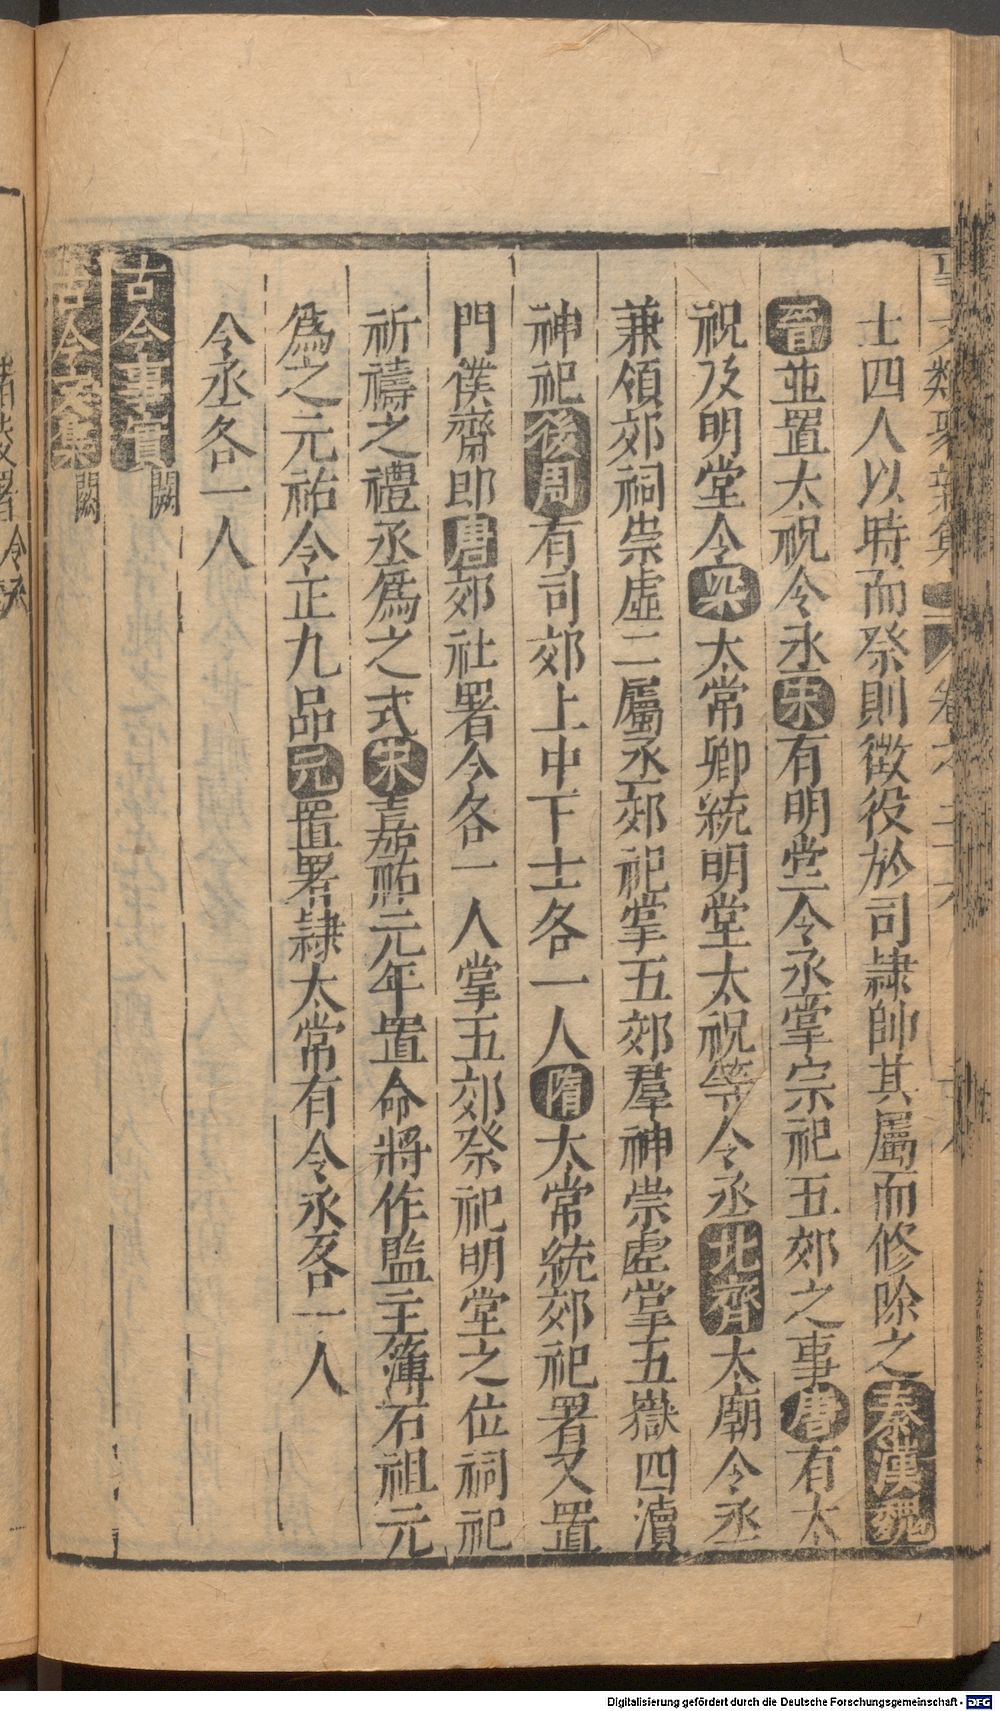 士四人以時而祭則徴役於司隷帥其屬而修除之秦漢魏
晉並置太祝令丞宋有明堂令丞掌宗祀五郊之事唐有太
祝及明堂令梁太常卿統明堂太祝等令丞北齊太廟令丞
兼領郊祠崇虛二屬丞郊祀掌五郊羣神崇虛掌五嶽四瀆
神祀後周有司郊上中下士各一人隋太常統郊祀署又置
門僕齋郎唐郊社署令各一人掌五郊祭祀明堂之位祠祀
祈禱之禮丞爲之式宋嘉祐元年置命將作監主簿石祖元
爲之元祐令正九品元置署隷太常有令丞各一人
令丞各一人
古今事實闕
古今文集闕
Digitalisierung gefördert durch die Deutsche Forschungsgemeinschaft - DFG